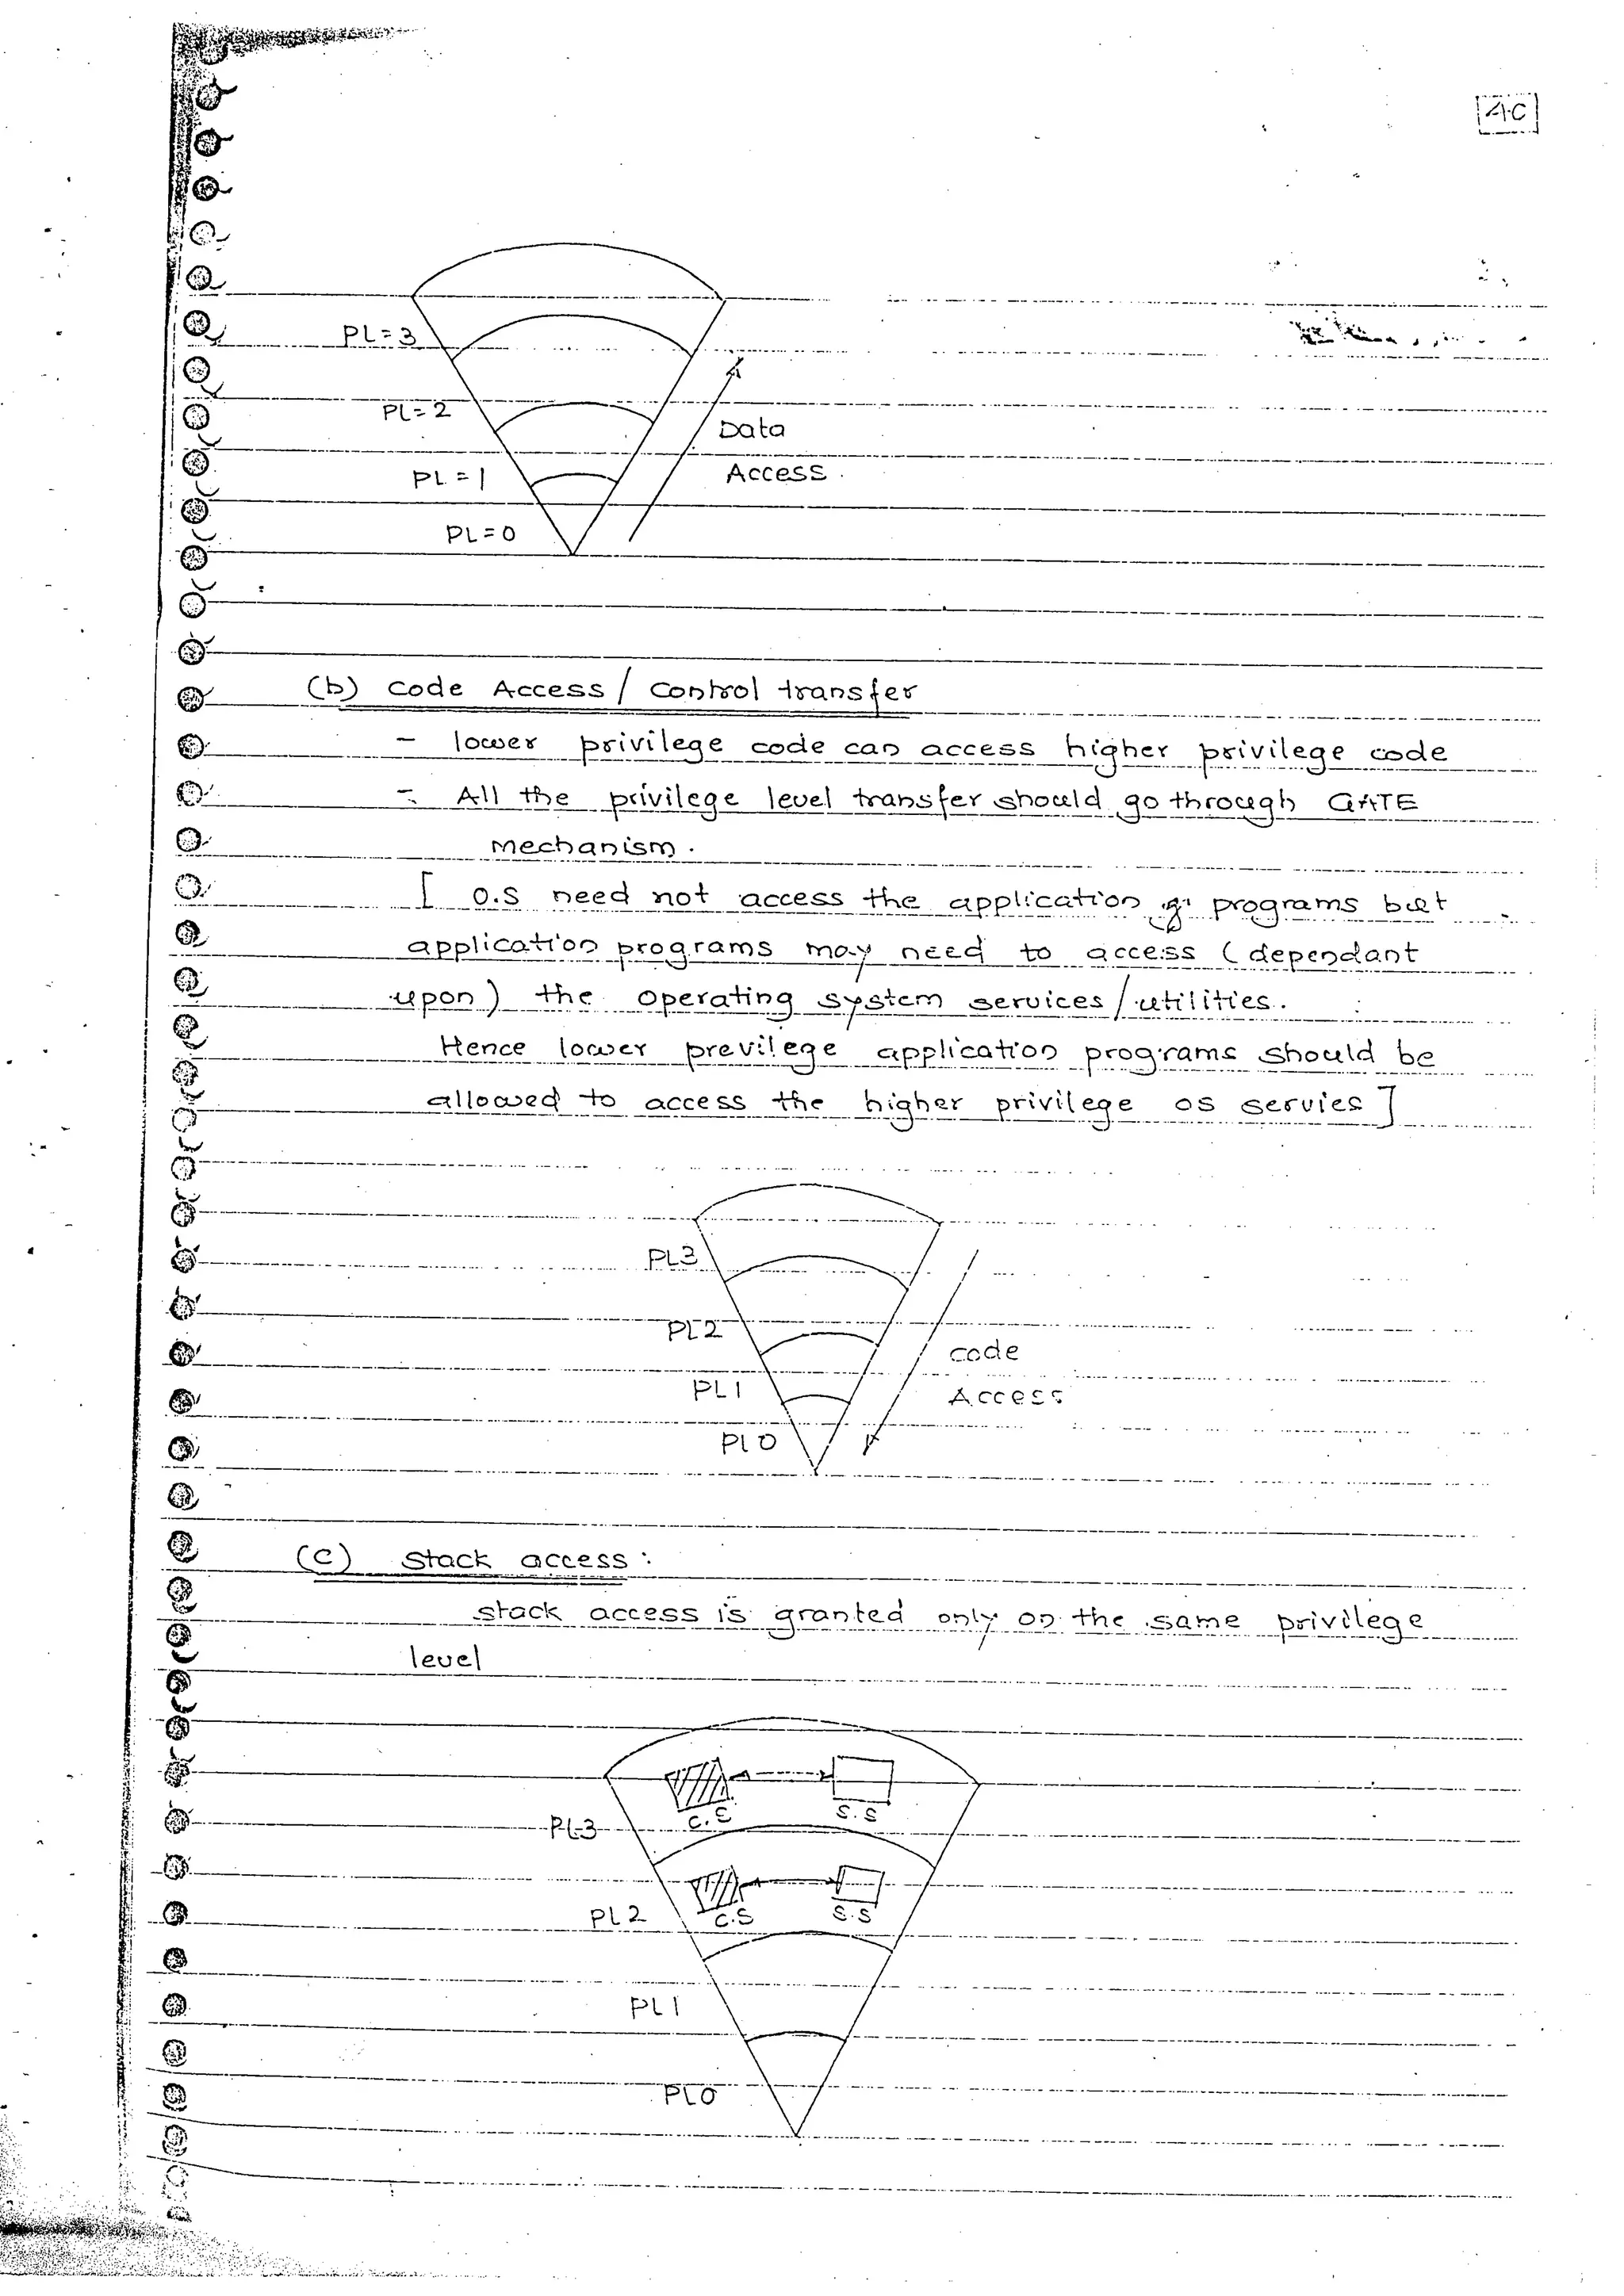 A.C
PL=3
PL=2
Data
PL=1
Access.
PL=0
(b) Code Access / Control transfer
- lower privilege code can access higher privilege code
- All the privilege level transfer should go through GATE
mechanism.
[ O.S need not access the application programs but
application programs may need to access (dependant
upon) the operating system services/utilities.
Hence lower previlege application programs should be
allowed to access the higher privilege OS servies ]
PL3
PL2
code
PL1
Access
PL0
(c) stack access :
stack access is granted only on the same privilege
level
C.S S.S
PL3
C.S S.S
PL2
PL1
PL0